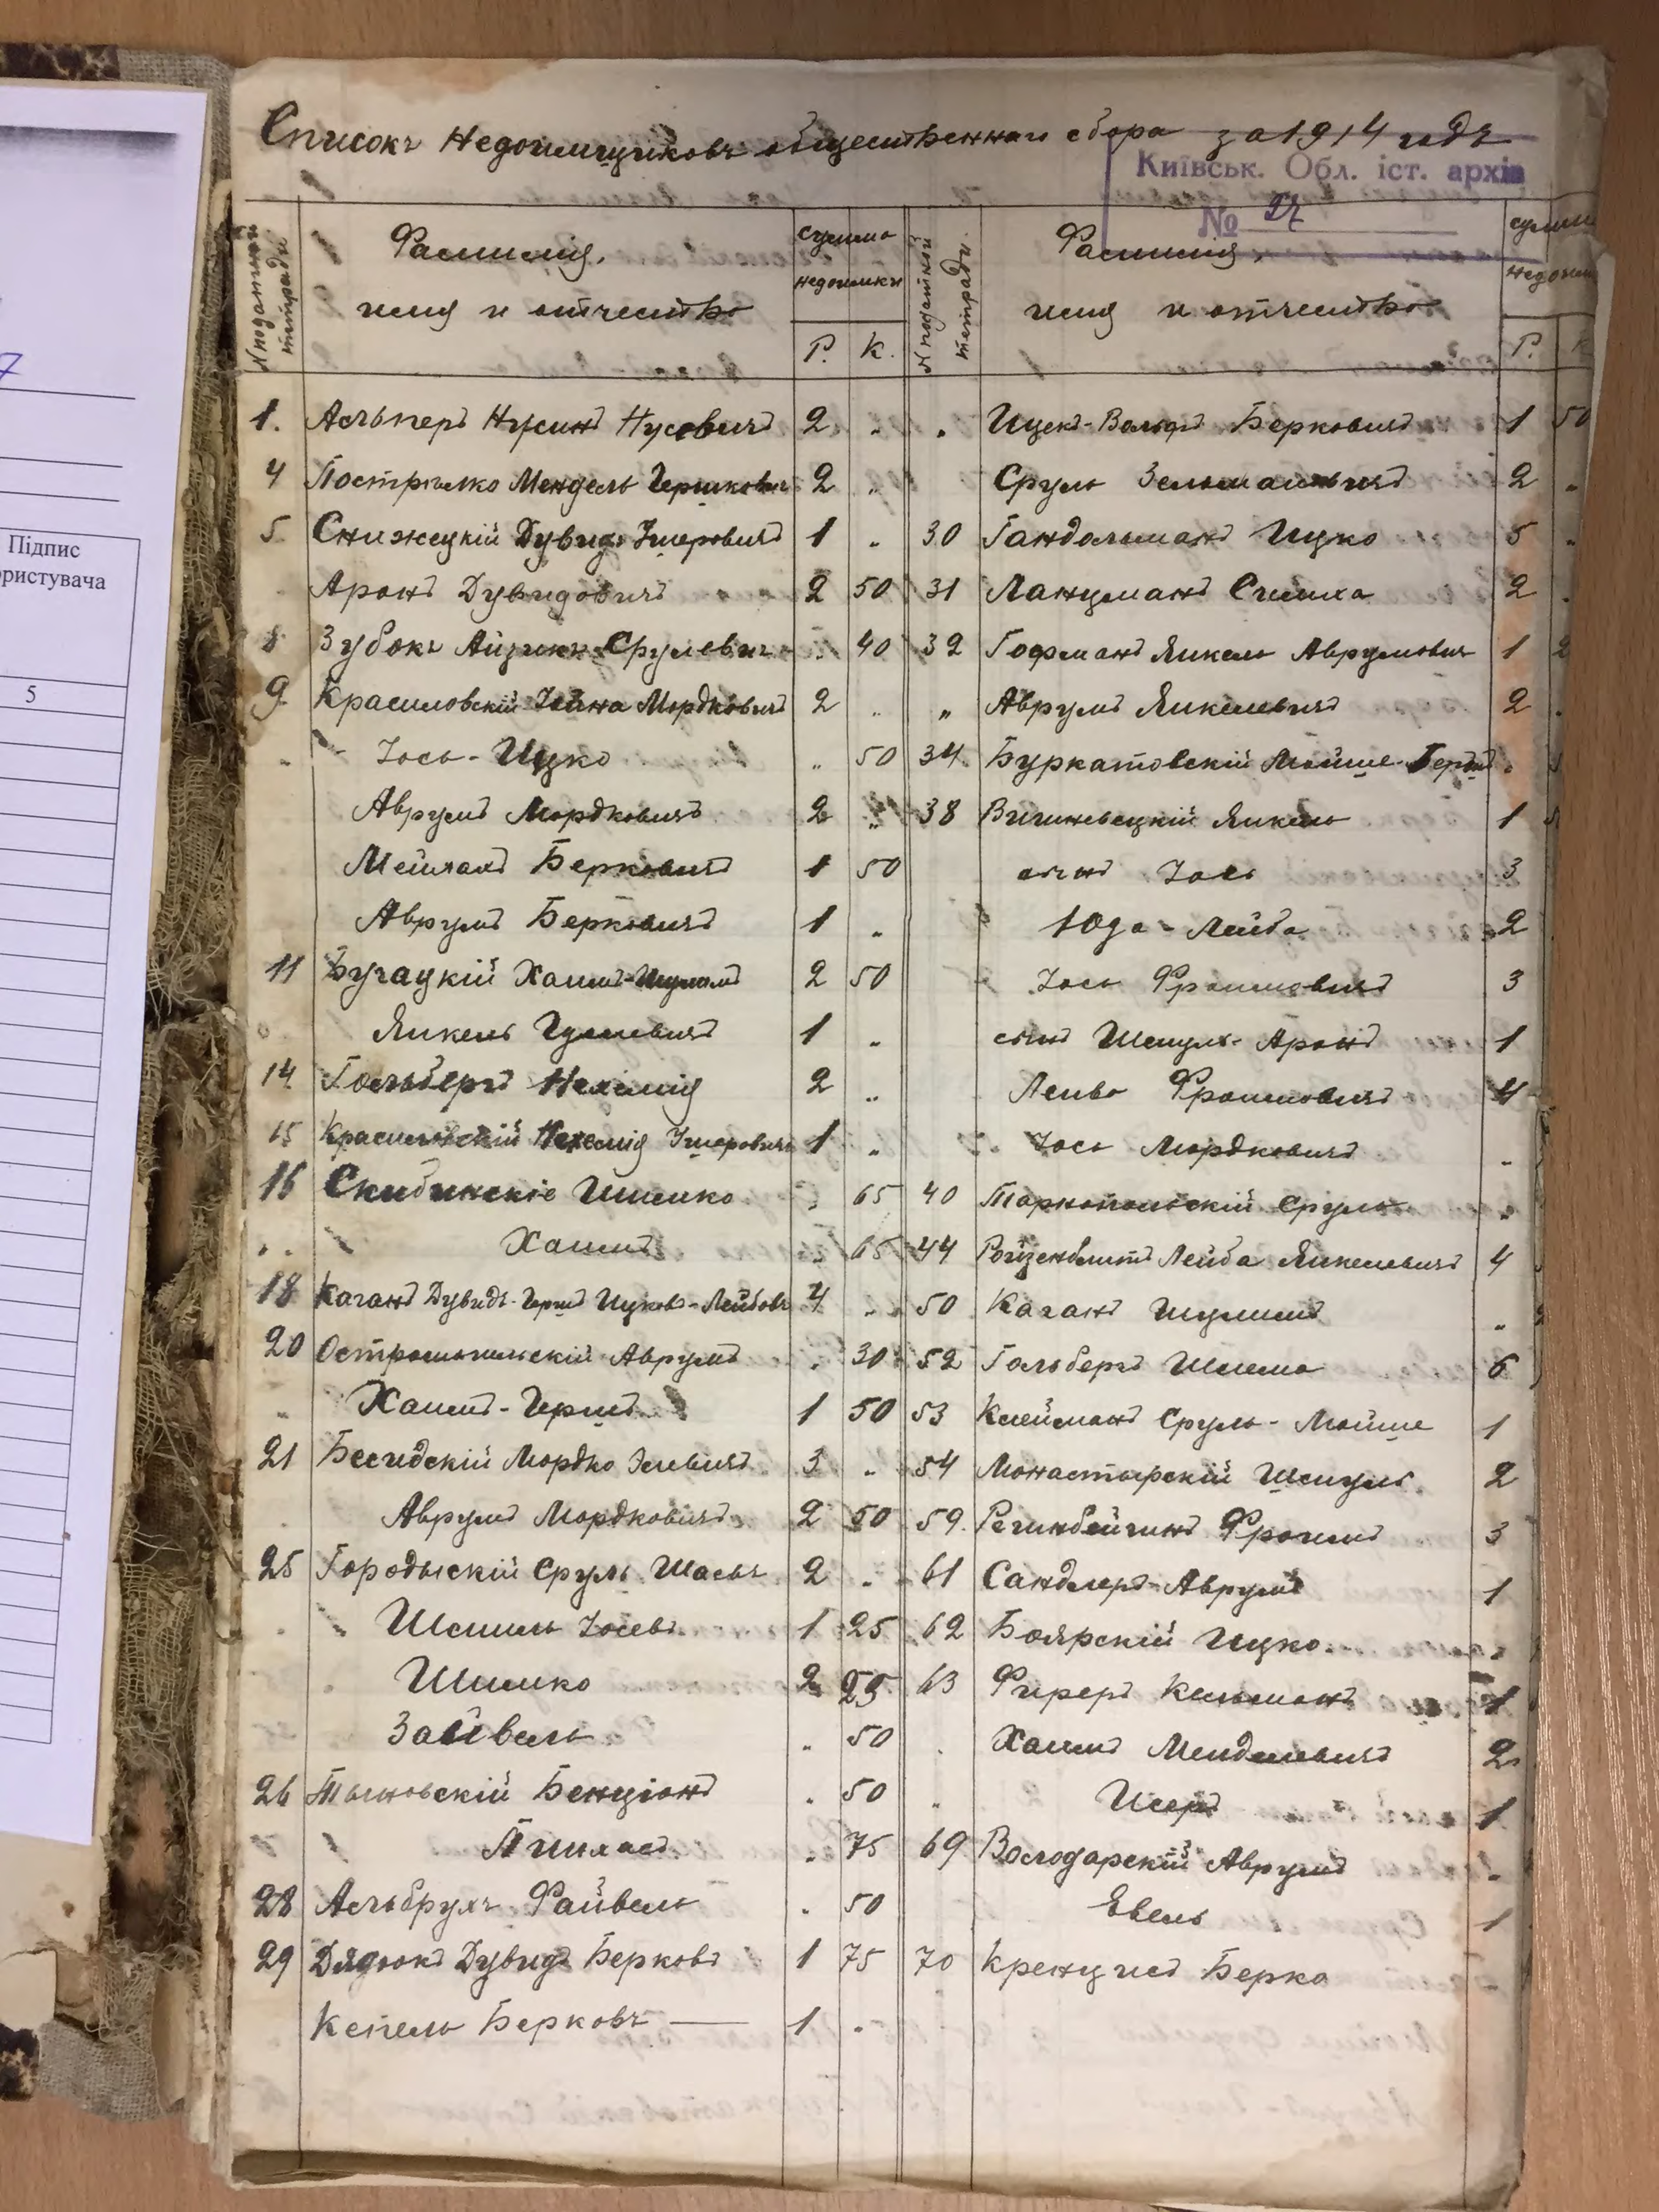 Списокъ Недоимщиковъ общественнаго сбора за 1914 годъ
Київськ. Обл. іст. архів
№ 27
N податной тетради
Фамилія,
имя и отчество
сумма недоимки
Р. К.
N податной тетради.
Фамилія,
имя и отчество
сумма
недоим
Р. К
1. Альперъ Нусинъ Нусовичъ 2 "
4 Пострелко Мендель Гершковичъ 2 "
5 Снижецкій Дувидъ Ишеровичъ 1 "
Аронъ Дувидовичъ 2 50
8 Зубокъ Айзикъ Срулевичъ " 40
9 Красиловскій Іойна Мордковичъ 2 "
" Іось-Ицко " 50
Аврумъ Мордковичъ 2 "
Мейлахъ Берковичъ 1 50
Аврумъ Берковичъ 1 "
11 Бугацкій Хаимъ-Шуломъ 2 50
Янкель 1 "
14 Гольбергъ Нехемія 2 "
15 Красиловскій Нехемія Ишеровичъ 1 "
16 Скибинскіе Шимко " 65
" " Хаимъ " 65
18 Каганъ Дувидъ-Гершъ Ицковъ-Лейбовъ 4 "
20 Острополькій Аврумъ " 30
" Хаимъ-Гершъ 1 50
21 Бесидскій Мордко Элевичъ 3 "
Аврумъ Мордковичъ 2 50
25 Городыскій Сруль 2 "
" " Шмиль Іосевъ 1 25
Шимко 2 25
Зайвель " 50
26 Тыновскій Бенціонъ " 50
" " Пинхасъ " 75
28 Альбрухъ Файвель " 50
29 Дядюкъ Дувидъ Берковъ 1 75
Кепель Берковъ — 1 "
" Ицекъ-Вольфъ Берковичъ 1 50
Сруль Зельмановичъ 2 "
30 Гандельманъ Ицко 5 "
31 Ланцманъ Симха 2
32 Гофманъ Янкель Аврумовичъ 1 2
" Аврумъ Янкелевичъ 2
34 Буркатовскій Мойше-Бердъ "
38 Вишневецкій Янкель 1
сынъ Іось 3
Юда-Лейба 2
Іось Фроимовичъ 3
сынъ Шмуль-Аронъ 1
Лейба Фроимовичъ 4
Іось Мордковичъ "
40 Тарнопольскій Сруль "
44 Ройзенблитъ Лейба Янкелевичъ 4
50 Каганъ Шулимъ "
52 Гольбергъ Шлема 6
53 Клейманъ Сруль-Мойше 1
54 Монастырскій Шмуль 2
59 Фроимъ 3
61 Сандлеръ Аврумъ 1
62 Боярскій Ицко "
63 Фиреръ Кельманъ 1
Хаимъ Менделевичъ 2
" Исеръ 1
69 Володарскій Аврумъ "
Евель 1
70 Кренцисъ Берко
Підпис
ористувача
5